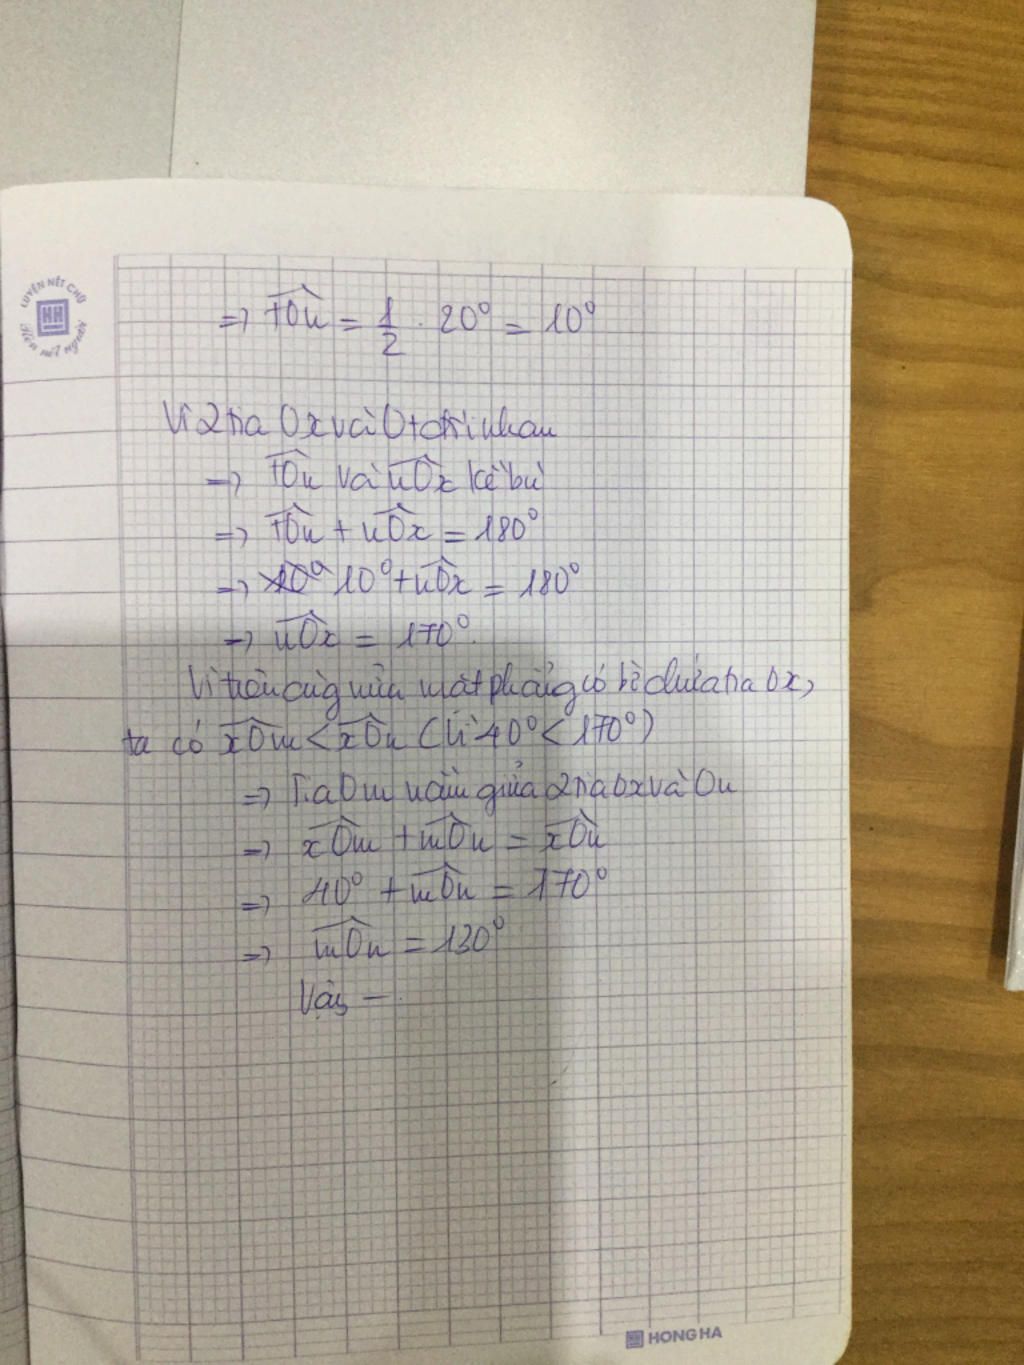 LUYỆN NÉT CHỮ
HH
Rèn nết người
=> tOn = 1/2 . 20° = 10°
Vì 2 tia Ox và Ot đối nhau
=> tOn và nOx kề bù
=> tOn + nOx = 180°
=> 10° + nOx = 180°
=> nOx = 170°.
Vì trên cùng nửa mặt phẳng có bờ chứa tia Ox,
ta có xOm < xOn (Vì 40° < 170°)
=> Tia Om nằm giữa 2 tia Ox và On
=> xOm + mOn = xOn
=> 40° + mOn = 170°
=> mOn = 130°
Vậy —
HONG HA